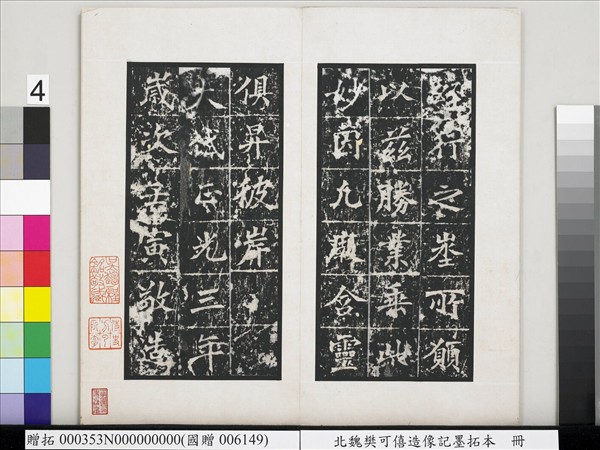 經行之坐所願
以茲勝業乘此
妙因凡厥含靈
俱昇彼岸
大魏正光三年
歲次壬寅敬造
4
贈拓 000353N000000000(國贈 006149)
北魏樊可僖造像記墨拓本 冊